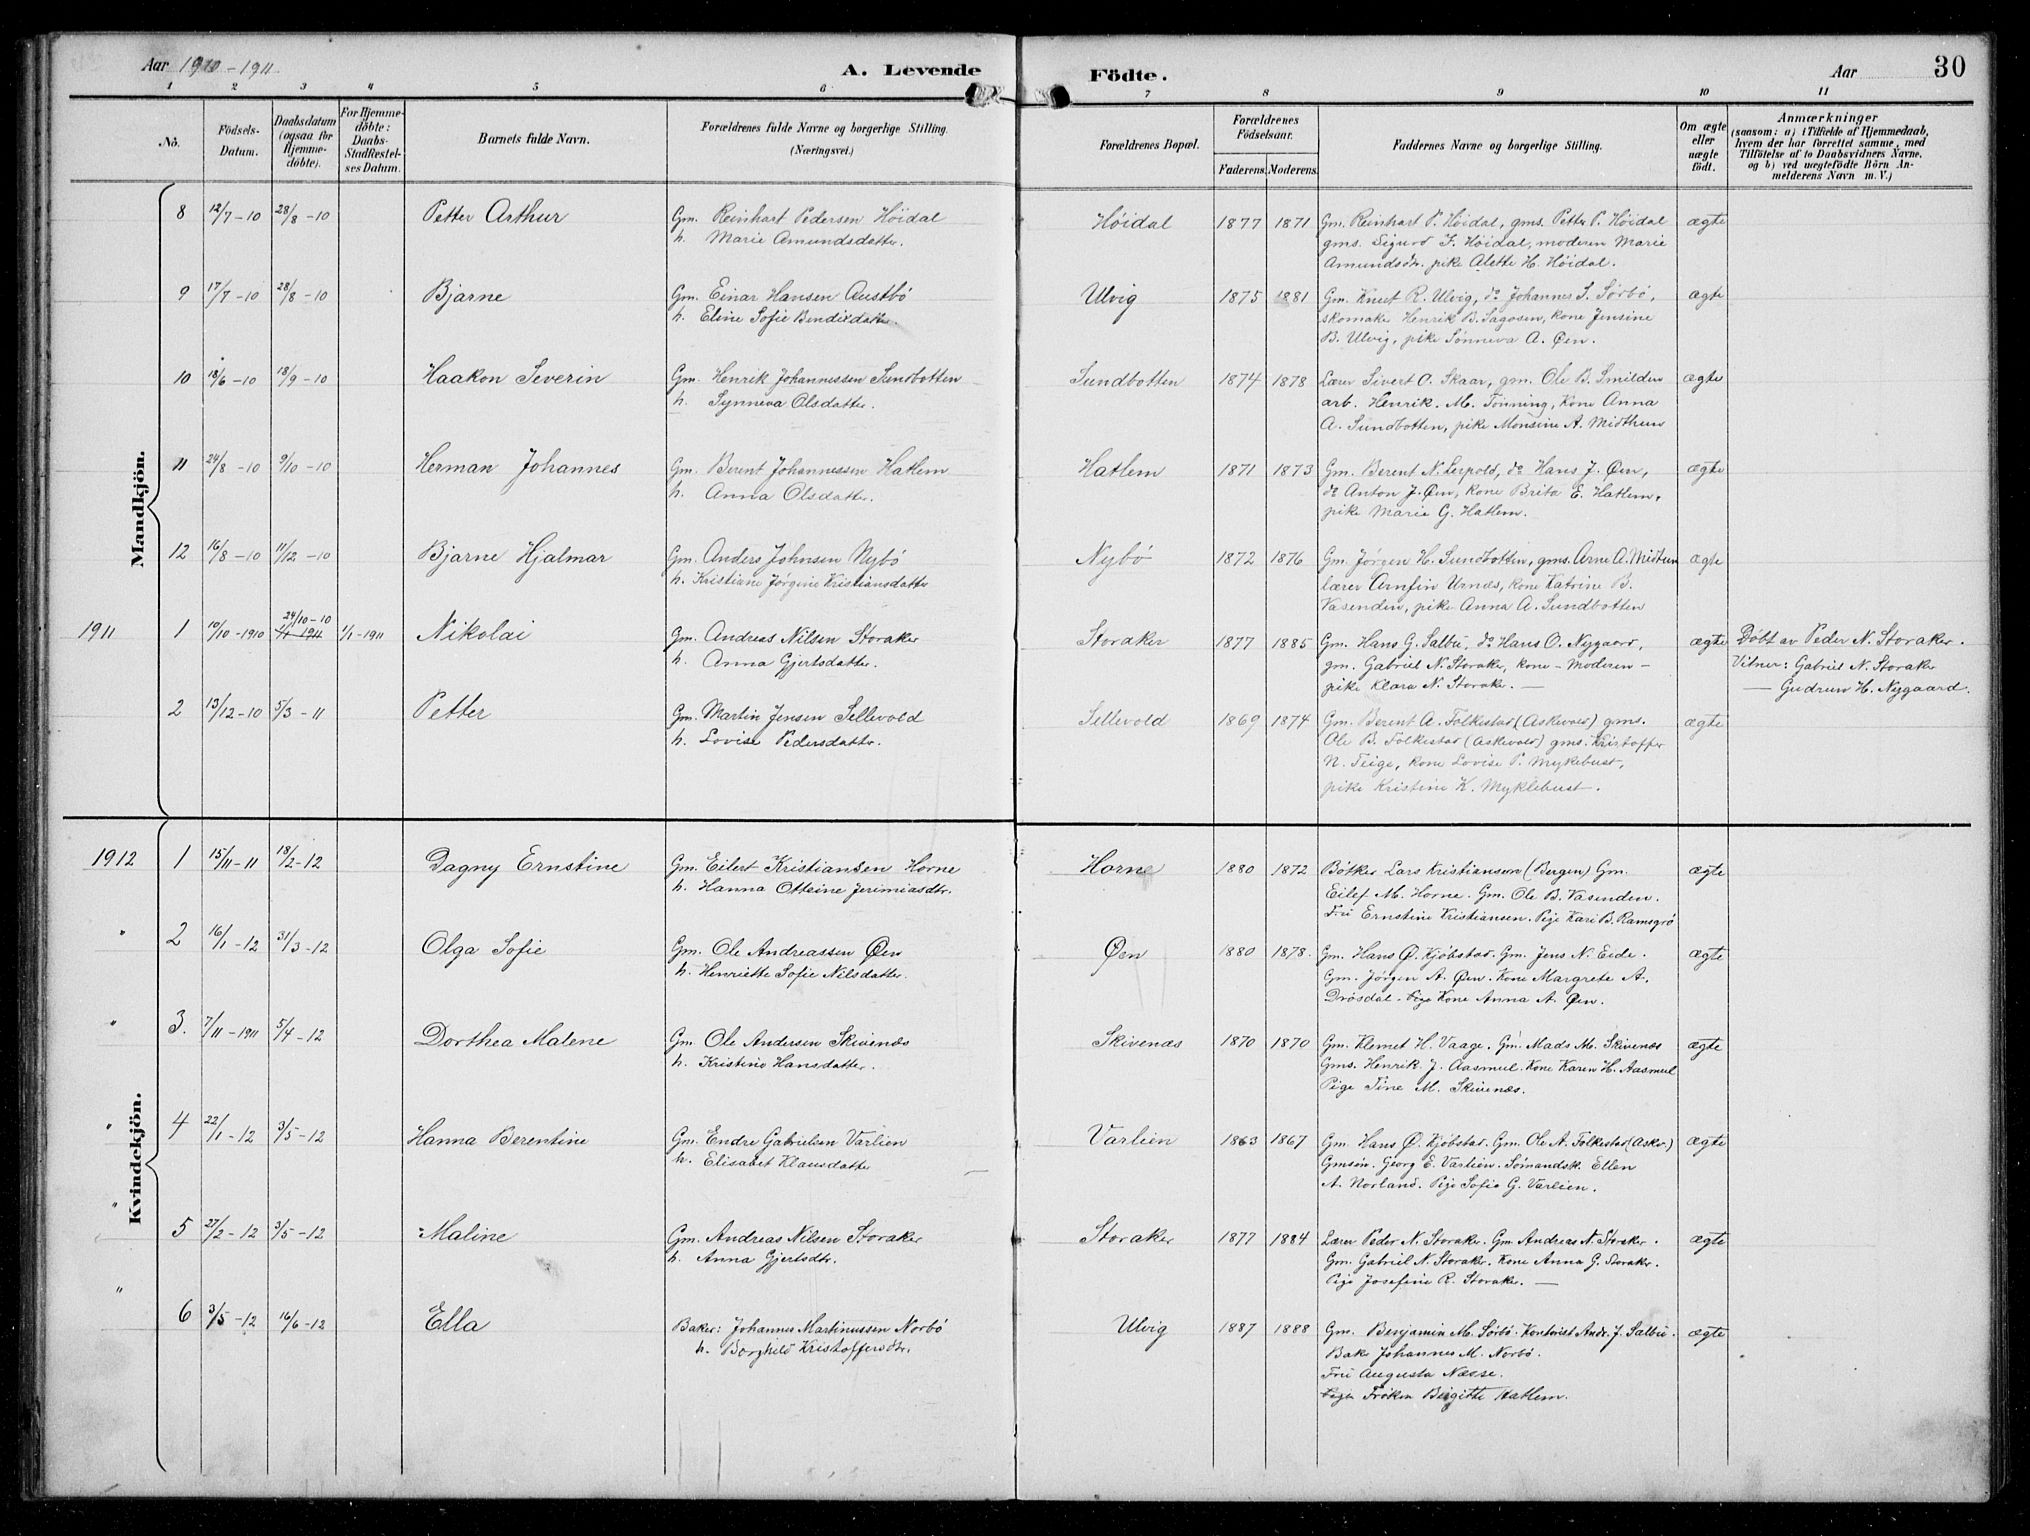 Aar 1910-1911
A. Levende
Födte.
Aar
30
1 2 3 4 5 6 7 8 9 10 11
No.
Födsels-Datum.
Daabsdatum (ogsaa for Hjemme-döbte).
For Hjemme-döbte: Daabs-Stadfæstel-ses Datum.
Barnets fulde Navn.
Forældrenes fulde Navne og borgerlige Stilling. (Næringsvei.)
Forældrenes Bopæl.
Forældrenes Födselsaar.
Faderens. Moderens.
Faddernes Navne og borgerlige Stilling.
Om ægte eller uægte födt.
Anmærkninger
(saasom: a) i Tilfælde af Hjemmedaab,
hvem der har forrettet samme, med
Tilföielse af to Daabsvidners Navne,
og b) ved uægtefödte Börn An-
melderens Navn m. V.)
Mandkjön.
8 12/7-10 28/8-10 Petter Arthur Gm. Reinhart Pedersen Höidal Höidal 1877 1871 Gm. Reinhart P. Höidal, gms. Petter P. Höidal ægte
h. Marie Amundsdatter. gms. Sigurd J. Höidal, moderen Marie
Amundsdr. pike Alette H. Höidal.
9 17/7-10 28/8-10 Bjarne Gm. Einar Hansen Austbö Ulvig 1875 1881 Gm. Knut R. Ulvig, do Johannes S. Sørbö, ægte
h. Eline Sofie Bendixdatter. skomaker Henrik B. Sagosen, kone Jensine
B. Ulvig, pike Sönneva A. Øen.
10 18/6-10 18/9-10 Haakon Severin Gm. Henrik Johannessen Sundbotten Sundbotten 1874 1878 Lærer Sivert O. Skaar, gm. Ole B. Smilden ægte
h. Synneva Olsdatter. arb. Henrik. M. Tönning, Kone Anna
A. Sundbotten, pike Monsine A. Midthun
11 24/8-10 9/10-10 Herman Johannes Gm. Berent Johannessen Hatlem Hatlem 1871 1873 Gm. Berent N. Leipold, do Hans J. Øen, ægte
h. Anna Olsdatter. do Anton J. Øen, kone Brita E. Hatlem,
pike Marie G. Hatlem.
12 16/8-10 11/12-10 Bjarne Hjalmar Gm. Anders Johnsen Nybö Nybö 1872 1876 Gm. Jørgen H. Sundbotten, gms. Arne A. Midtun ægte
h. Kristiane Jørgine Kristiansdatter lærer Arnfin Urnæs, kone Katrine B.
Vasenden, pike Anna A. Sundbotten
1911 1 10/10-1910 24/10-10 1/1-1911 1/1-1911 Nikolai Gm. Andreas Nilsen Storaker Storaker 1877 1885 Gm. Hans G. Salbu, do Hans O. Nygaard, ægte Döbt av Peder N. Storaker.
h. Anna Gjertsdatter. gm. Gabriel N. Storaker, kone - Moderen - Vitner: Gabriel N. Storaker
pike Klara N. Storaker. — — Gudrun H. Nygaard.
2 13/12-10 5/3-11 Petter Gm. Martin Jensen Sellevold Sellevold 1869 1874 Gm. Berent A. Folkestad (Askevold) gms. ægte
h. Lovise Pedersdatter. Ole B. Folkestad (Askevold) gms. Kristoffer
N. Teige, kone Lovise P. Myklebust,
pike Kristine K. Myklebust.
Kvindekjön.
1912 1 15/11-11 18/2-12 Dagny Ernstine Gm. Eilert Kristiansen Horne Horne 1880 1872 Bötker Lars Kristiansen (Bergen) Gm. ægte
h. Hanna Otteine Jerimiasdtr. Eilef M. Horne. Gm. Ole B. Vasenden.
Fru Ernstine Kristiansen. Pige Kari B. Ramsgrö
" 2 16/1-12 31/3-12 Olga Sofie Gm. Ole Andreassen Øen Øen 1880 1878. Gm. Hans Ø. Kjöbstad. Gm. Jens N. Eide. ægte
h. Henriette Sofie Nilsdatter. Gm. Jörgen A. Øen. Kone Margrete A.
Drösdal. Pige Kone Anna A. Øen.
" 3. 7/11-1911 5/4-12 Dorthea Malene Gm. Ole Andersen Skivenæs Skivenæs 1870 1870 Gm. Klemet H. Vaage. Gm. Mads M. Skivenæs ægte
h. Kristine Hansdatter. Gms. Henrik J. Aasmul. Kone Karen H. Aasmul
Pige Tine M. Skivenæs.
" 4 22/1-12 3/5-12 Hanna Berentine Gm. Endre Gabrielsen Varlien Varlien 1863 1867 Gm. Hans Ø. Kjöbstad. Gm. Ole A. Folkestad (Askv.) ægte
h. Elisabet Klausdatter Gmsøn. Georg E. Varlien. Sömandsk. Ellen
A. Norland. Pige Sofie G. Varlien.
" 5 27/2-12 3/5-12 Maline Gm. Andreas Nilsen Storaker Storaker 1877 1884 Lærer Peder N. Storaker. Gm Andreas N. Storaker. ægte
h. Anna Gjertsdtr. Gm. Gabriel N. Storaker. Kone Anna G. Storaker.
Pige Josefine R. Storaker. —
" 6 3/5-12 16/6-12 Ella Baker: Johannes Martinussen Norbö Ulvig 1887 1888 Gm. Benjamin M. Sørbö. Kontorist Andr. J. Salbu. ægte
h. Borghild Kristoffersdtr. Baker Johannes M. Norbö.
Fru Augusta Næsse.
Pige Fröken Birgitte Hatlem.